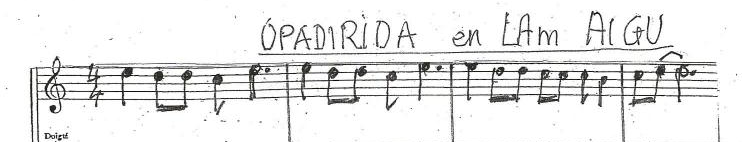 OPADIRIDA en LAm AIGU
4
4
Doigté